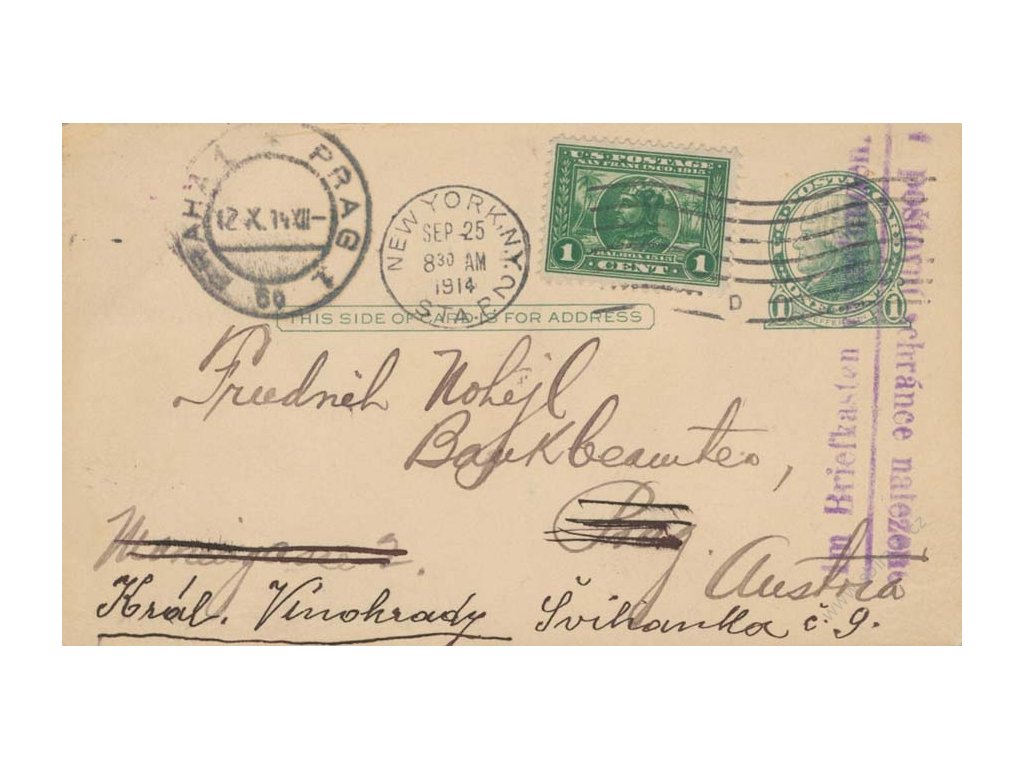 PRAHA 1 PRAG 1
12.X.14 XII-
6g
NEW YORK, N.Y.
SEP 25
8 30 AM
1914
STA. P. 2
D
U·S·POSTAGE
SAN FRANCISCO, 1915
BALBOA 1513
1 CENT 1
POSTAL CARD
1 1
JEFFERSON
THIS SIDE OF CARD IS FOR ADDRESS
Friedrich Nohejl
Bankbeamter,
Prag. Austria
Král. Vinohrady Švihanka č. 9.
Im Briefkasten
poštovní schránce nalezeno